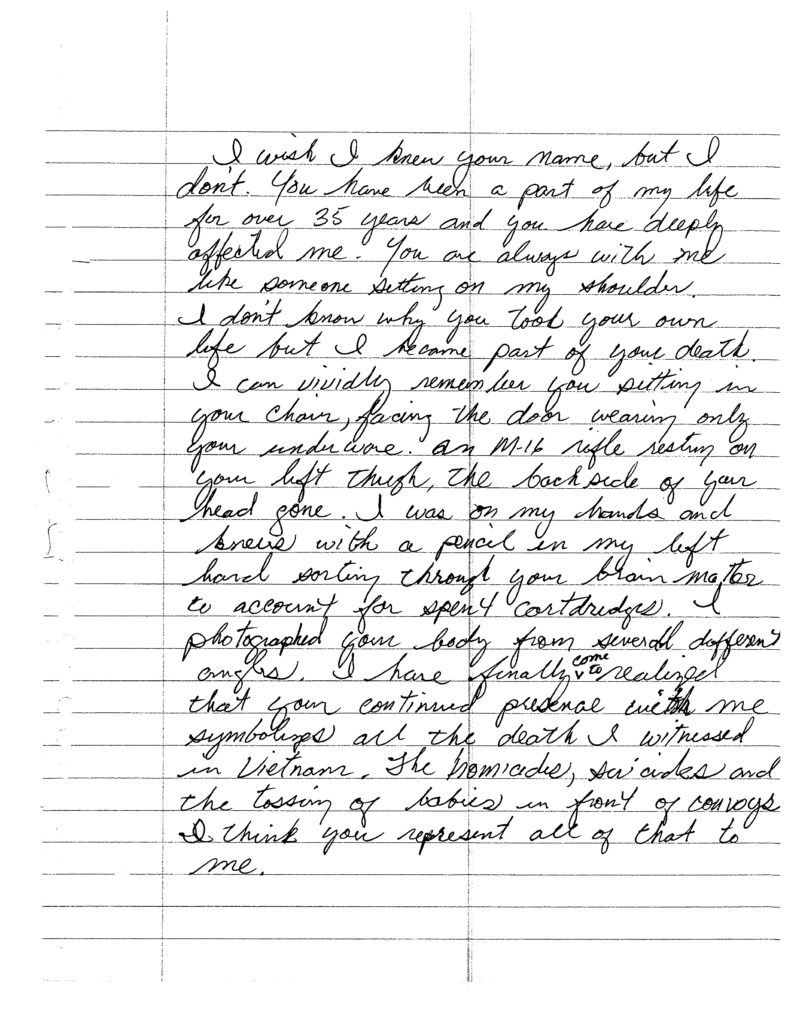 I wish I knew your name, but I
don't. You have been a part of my life
for over 35 years and you have deeply
affected me. You are always with me
like someone setting on my shoulder.
I don't know why you took your own
life but I became part of your death.
I can vividly remember you sitting in
your chair, facing the door wearing only
your underware. an M-16 rifle resting on
your left thigh, the backside of your
head gone. I was on my hands and
knees with a pencil in my left
hand sorting through your brain matter
to account for spent cartdridges. I
photographed your body from several different
angles. I have finally come to realized
that your continued presenae with me
symbolizes all the death I witnessed
in Vietnam. The homicides, suicides and
the tossing of babies in front of convoys
I think you represent all of that to
me.